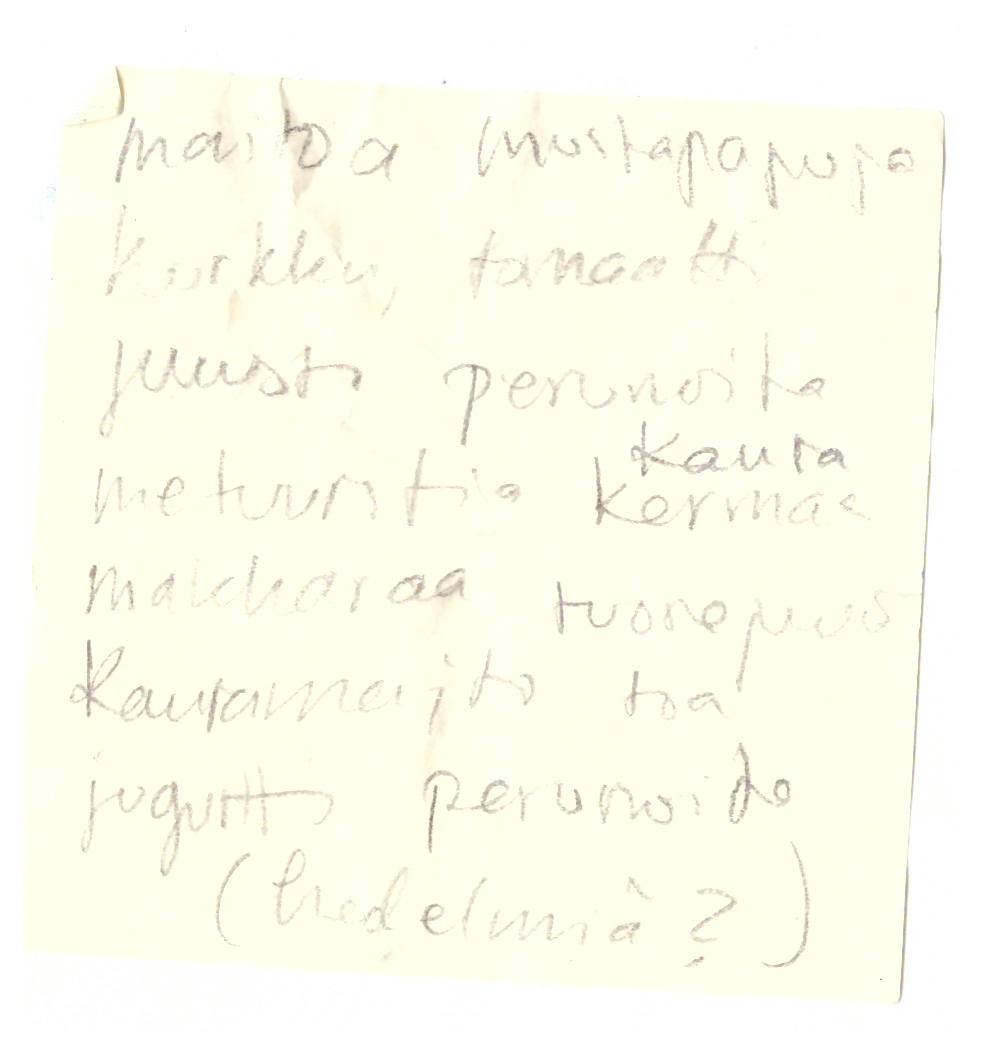 maitoa mustapapuja
kurkku, tomaatti
juusto perunoita
kaura
metwurstia kermaa
makkaraa tuorepuuro
kauramaito toa
jugurtto perunoita
(hedelmiä?)